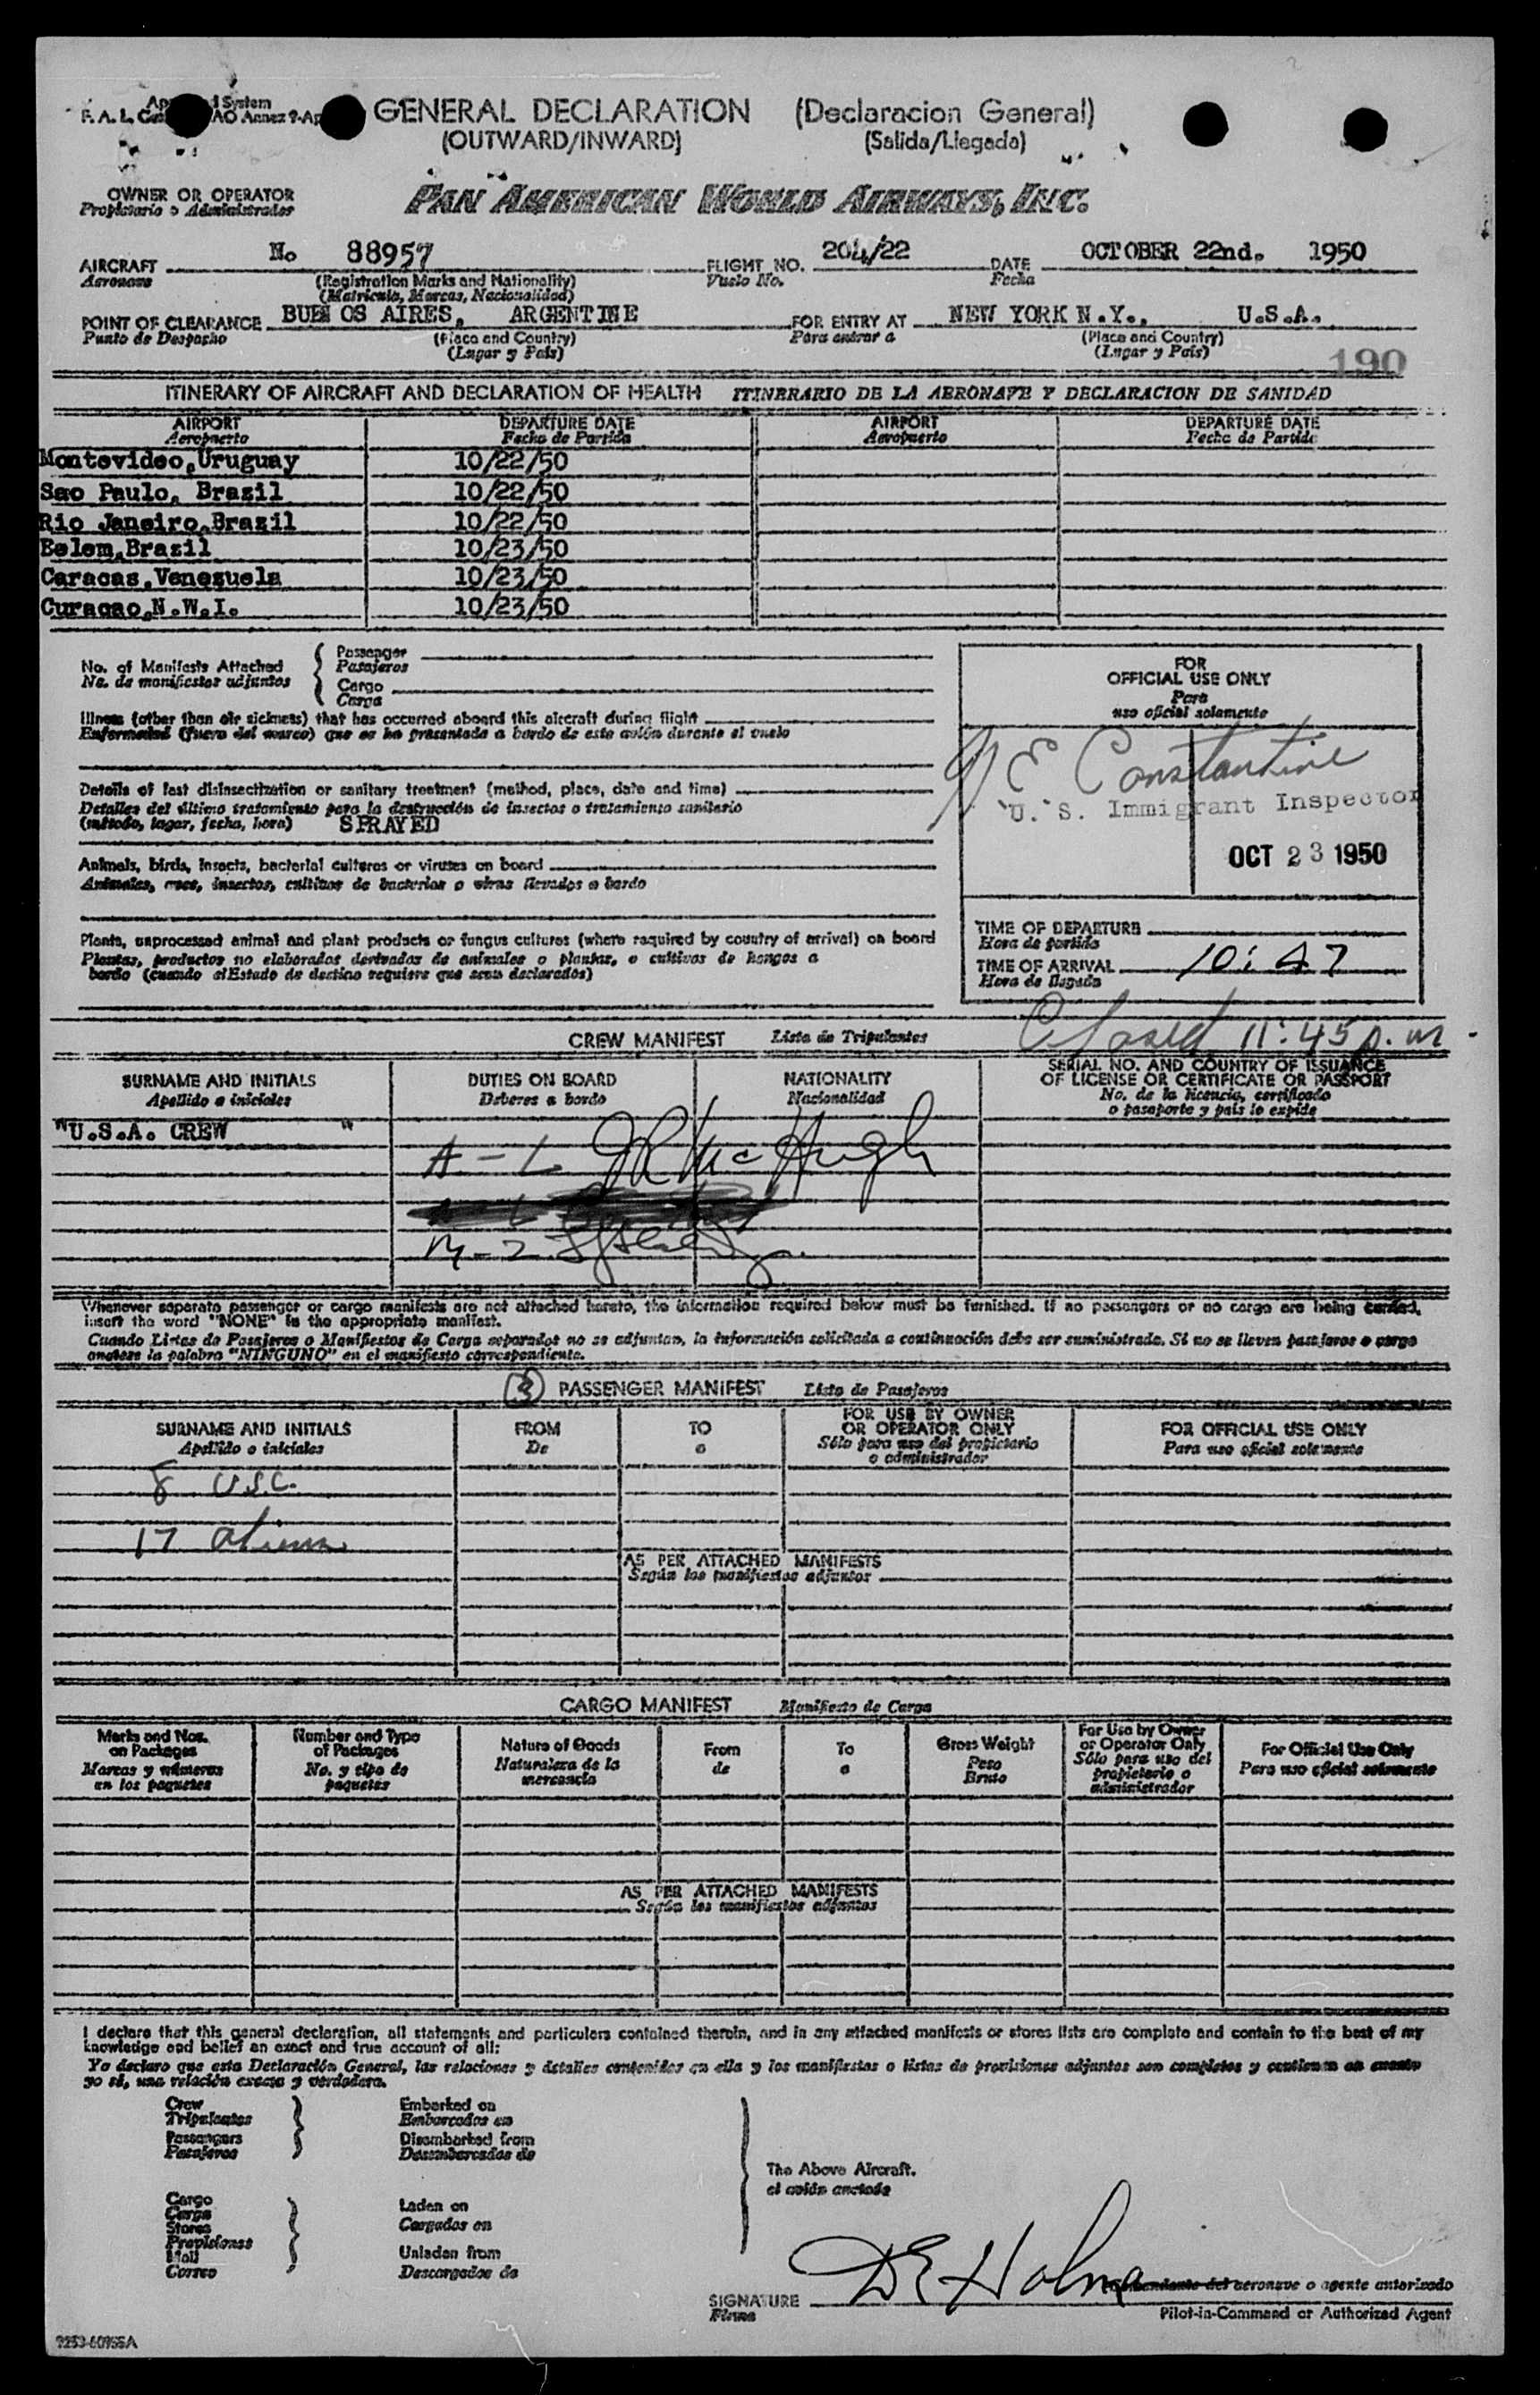 GENERAL DECLARATION (Declaracion General)
(OUTWARD/INWARD) (Salida/Llegada)
OWNER OR OPERATOR PAN AMERICAN WORLD AIRWAYS, INC.
Propietario o Administrador
AIRCRAFT No 88957 FLIGHT NO. 204/22 DATE OCTOBER 22nd. 1950
Aeronave (Registration Marks and Nationality) Vuelo No. Fecha
(Matricula, Marcas, Nacionalidad)
POINT OF CLEARANCE BUEN OS AIRES, ARGENTINE FOR ENTRY AT NEW YORK N.Y., U.S.A.
Punto de Despacho (Place and Country) Para entrar a (Place and Country)
(Lugar y País) (Lugar y País) 190
ITINERARY OF AIRCRAFT AND DECLARATION OF HEALTH ITINERARIO DE LA AERONAVE Y DECLARACION DE SANIDAD
AIRPORT DEPARTURE DATE AIRPORT DEPARTURE DATE
Aeropuerto Fecha de Partida Aeropuerto Fecha de Partida
Montevideo,Uruguay 10/22/50
Sao Paulo, Brazil 10/22/50
Rio Janeiro,Brazil 10/22/50
Belem,Brazil 10/23/50
Caracas,Venezuela 10/23/50
Curacao,N.W.I. 10/23/50
No. of Manifests Attached Passenger
No. de manifiestos adjuntos Pasajeros
Cargo
Carga
Illness (other than air sickness) that has occurred aboard this aircraft during flight
Enfermedad (fuera del mareo) que se ha presentado a bordo de este avión durante el vuelo
Details of last disinsectization or sanitary treatment (method, place, date and time)
Detalles del último tratamiento para la destrucción de insectos o tratamiento sanitario
(método, lugar, fecha, hora) SPRAYED
Animals, birds, insects, bacterial cultures or viruses on board
Animales, aves, insectos, cultivos de bacterias o virus llevados a bordo
Plants, unprocessed animal and plant products or fungus cultures (where required by country of arrival) on board
Plantas, productos no elaborados derivados de animales o plantas, o cultivos de hongos a
bordo (cuando el Estado de destino requiere que sean declarados)
FOR
OFFICIAL USE ONLY
Para
uso oficial solamente
E Constantine
U. S. Immigrant Inspector
OCT 23 1950
TIME OF DEPARTURE
Hora de partida
TIME OF ARRIVAL 10:47
Hora de llegada
Closed 11:45 p.m.
CREW MANIFEST Lista de Tripulantes
SURNAME AND INITIALS DUTIES ON BOARD NATIONALITY SERIAL NO. AND COUNTRY OF ISSUANCE
OF LICENSE OR CERTIFICATE OR PASSPORT
Apellido e iniciales Deberes a bordo Nacionalidad No. de la licencia, certificado
o pasaporte y país lo expide
"U.S.A. CREW "
A-L JR McHugh
M-2
Whenever separate passenger or cargo manifests are not attached hereto, the information required below must be furnished. If no passengers or no cargo are being carried,
insert the word "NONE" in the appropriate manifest.
Cuando Listas de Pasajeros o Manifiestos de Carga separados no se adjuntan, la información solicitada a continuación debe ser suministrada. Si no se lleven pasajeros o carga
anótese la palabra "NINGUNO" en el manifiesto correspondiente.
PASSENGER MANIFEST Lista de Pasajeros
SURNAME AND INITIALS FROM TO FOR USE BY OWNER FOR OFFICIAL USE ONLY
OR OPERATOR ONLY
Apellido o iniciales De a Sólo para uso del propietario Para uso oficial solamente
o administrador
8 U.S.C.
17 aliens
AS PER ATTACHED MANIFESTS
Según los manifiestos adjuntos
CARGO MANIFEST Manifiesto de Carga
Marks and Nos. Number and Type Nature of Goods From To Gross Weight For Use by Owner For Official Use Only
on Packages of Packages or Operator Only
Marcas y números No. y tipo de Naturaleza de la de a Peso Sólo para uso del Para uso oficial solamente
en los paquetes paquetes mercancía Bruto propietario o
administrador
AS PER ATTACHED MANIFESTS
Según los manifiestos adjuntos
I declare that this general declaration, all statements and particulars contained therein, and in any attached manifests or stores lists are complete and contain to the best of my
knowledge and belief an exact and true account of all:
Yo declaro que esta Declaración General, las relaciones y detalles contenidos en ella y los manifiestos o listas de provisiones adjuntos son completos y contienen en cuanto
yo sé, una relación exacta y verdadera.
Crew Embarked on
Tripulantes Embarcados en
Passengers Disembarked from
Pasajeros Desembarcados de
The Above Aircraft.
el avión anotado
Cargo Laden on
Carga Cargados en
Stores
Provisiones Unladen from
Mail Descargados de
Correo
SIGNATURE DE Holma aeronave o agente autorizado
Firma Pilot-in-Command or Authorized Agent